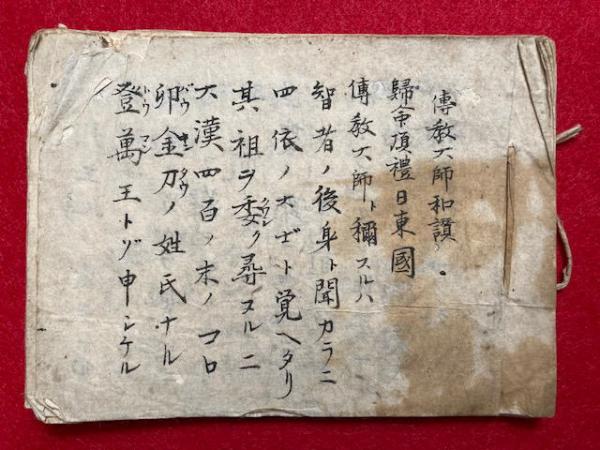 傳教大師和讃
歸命頂禮日東國
傳教大師ト稱スルハ
智者ノ後身ト聞カラニ
四依ノ大士ト覚ヘタリ
其祖ヲ委ク尋ヌルニ
大漢四百ノ末ノコロ
卯金刀ノ姓氏ナル
登萬王トゾ申シケル